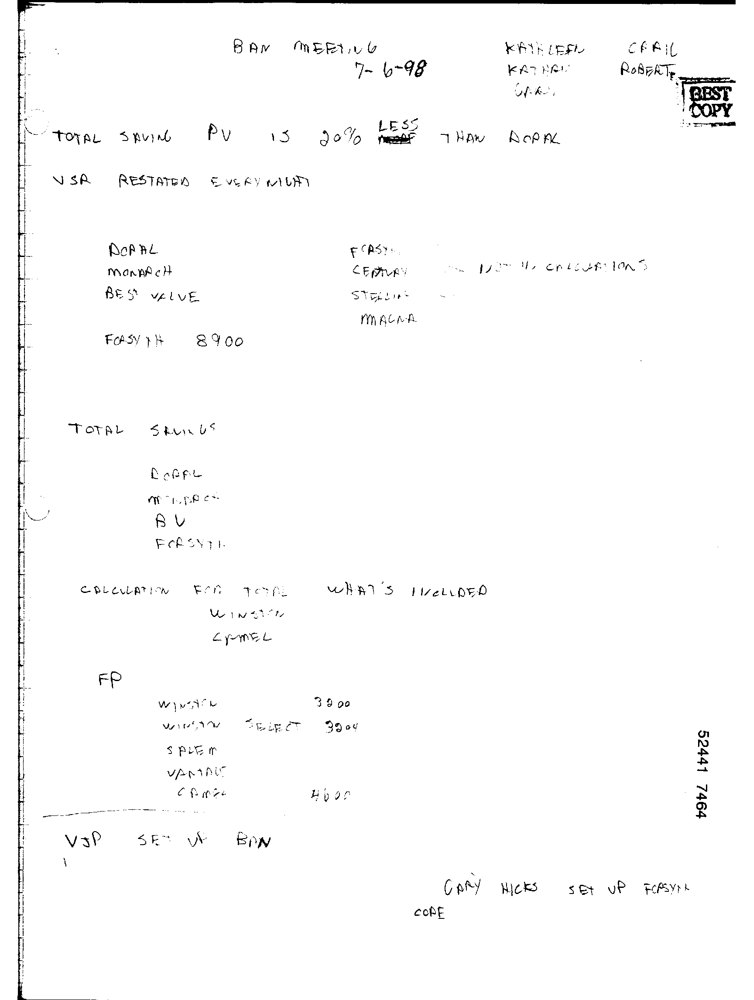 BAN MEETING KATHLEEN CRAIL
7-6-98 ROBERT
CRAIL
BEST
COPY
TOTAL SAVING PV IS 20% LESS THAN DORAL
VSR RESTATED EVERY NIGHT
DORAL FORSYTH
MONARCH CENTURY NOT IN CALCULATIONS
BEST VALUE STERLING
MAGNA
FORSYTH 8900
TOTAL SAVINGS
DORAL
MONARCH
BV
FORSYTH
CALCULATION FOR TOTAL WHAT'S INCLUDED
WINSTON
CAMEL
FP
WINSTON 3900
WINSTON SELECT 3904
SALEM
VANTAGE
CAMEL 4600
VJP SET UP BAN
GARY HICKS SET UP FORSYTH
CODE
52441 7464